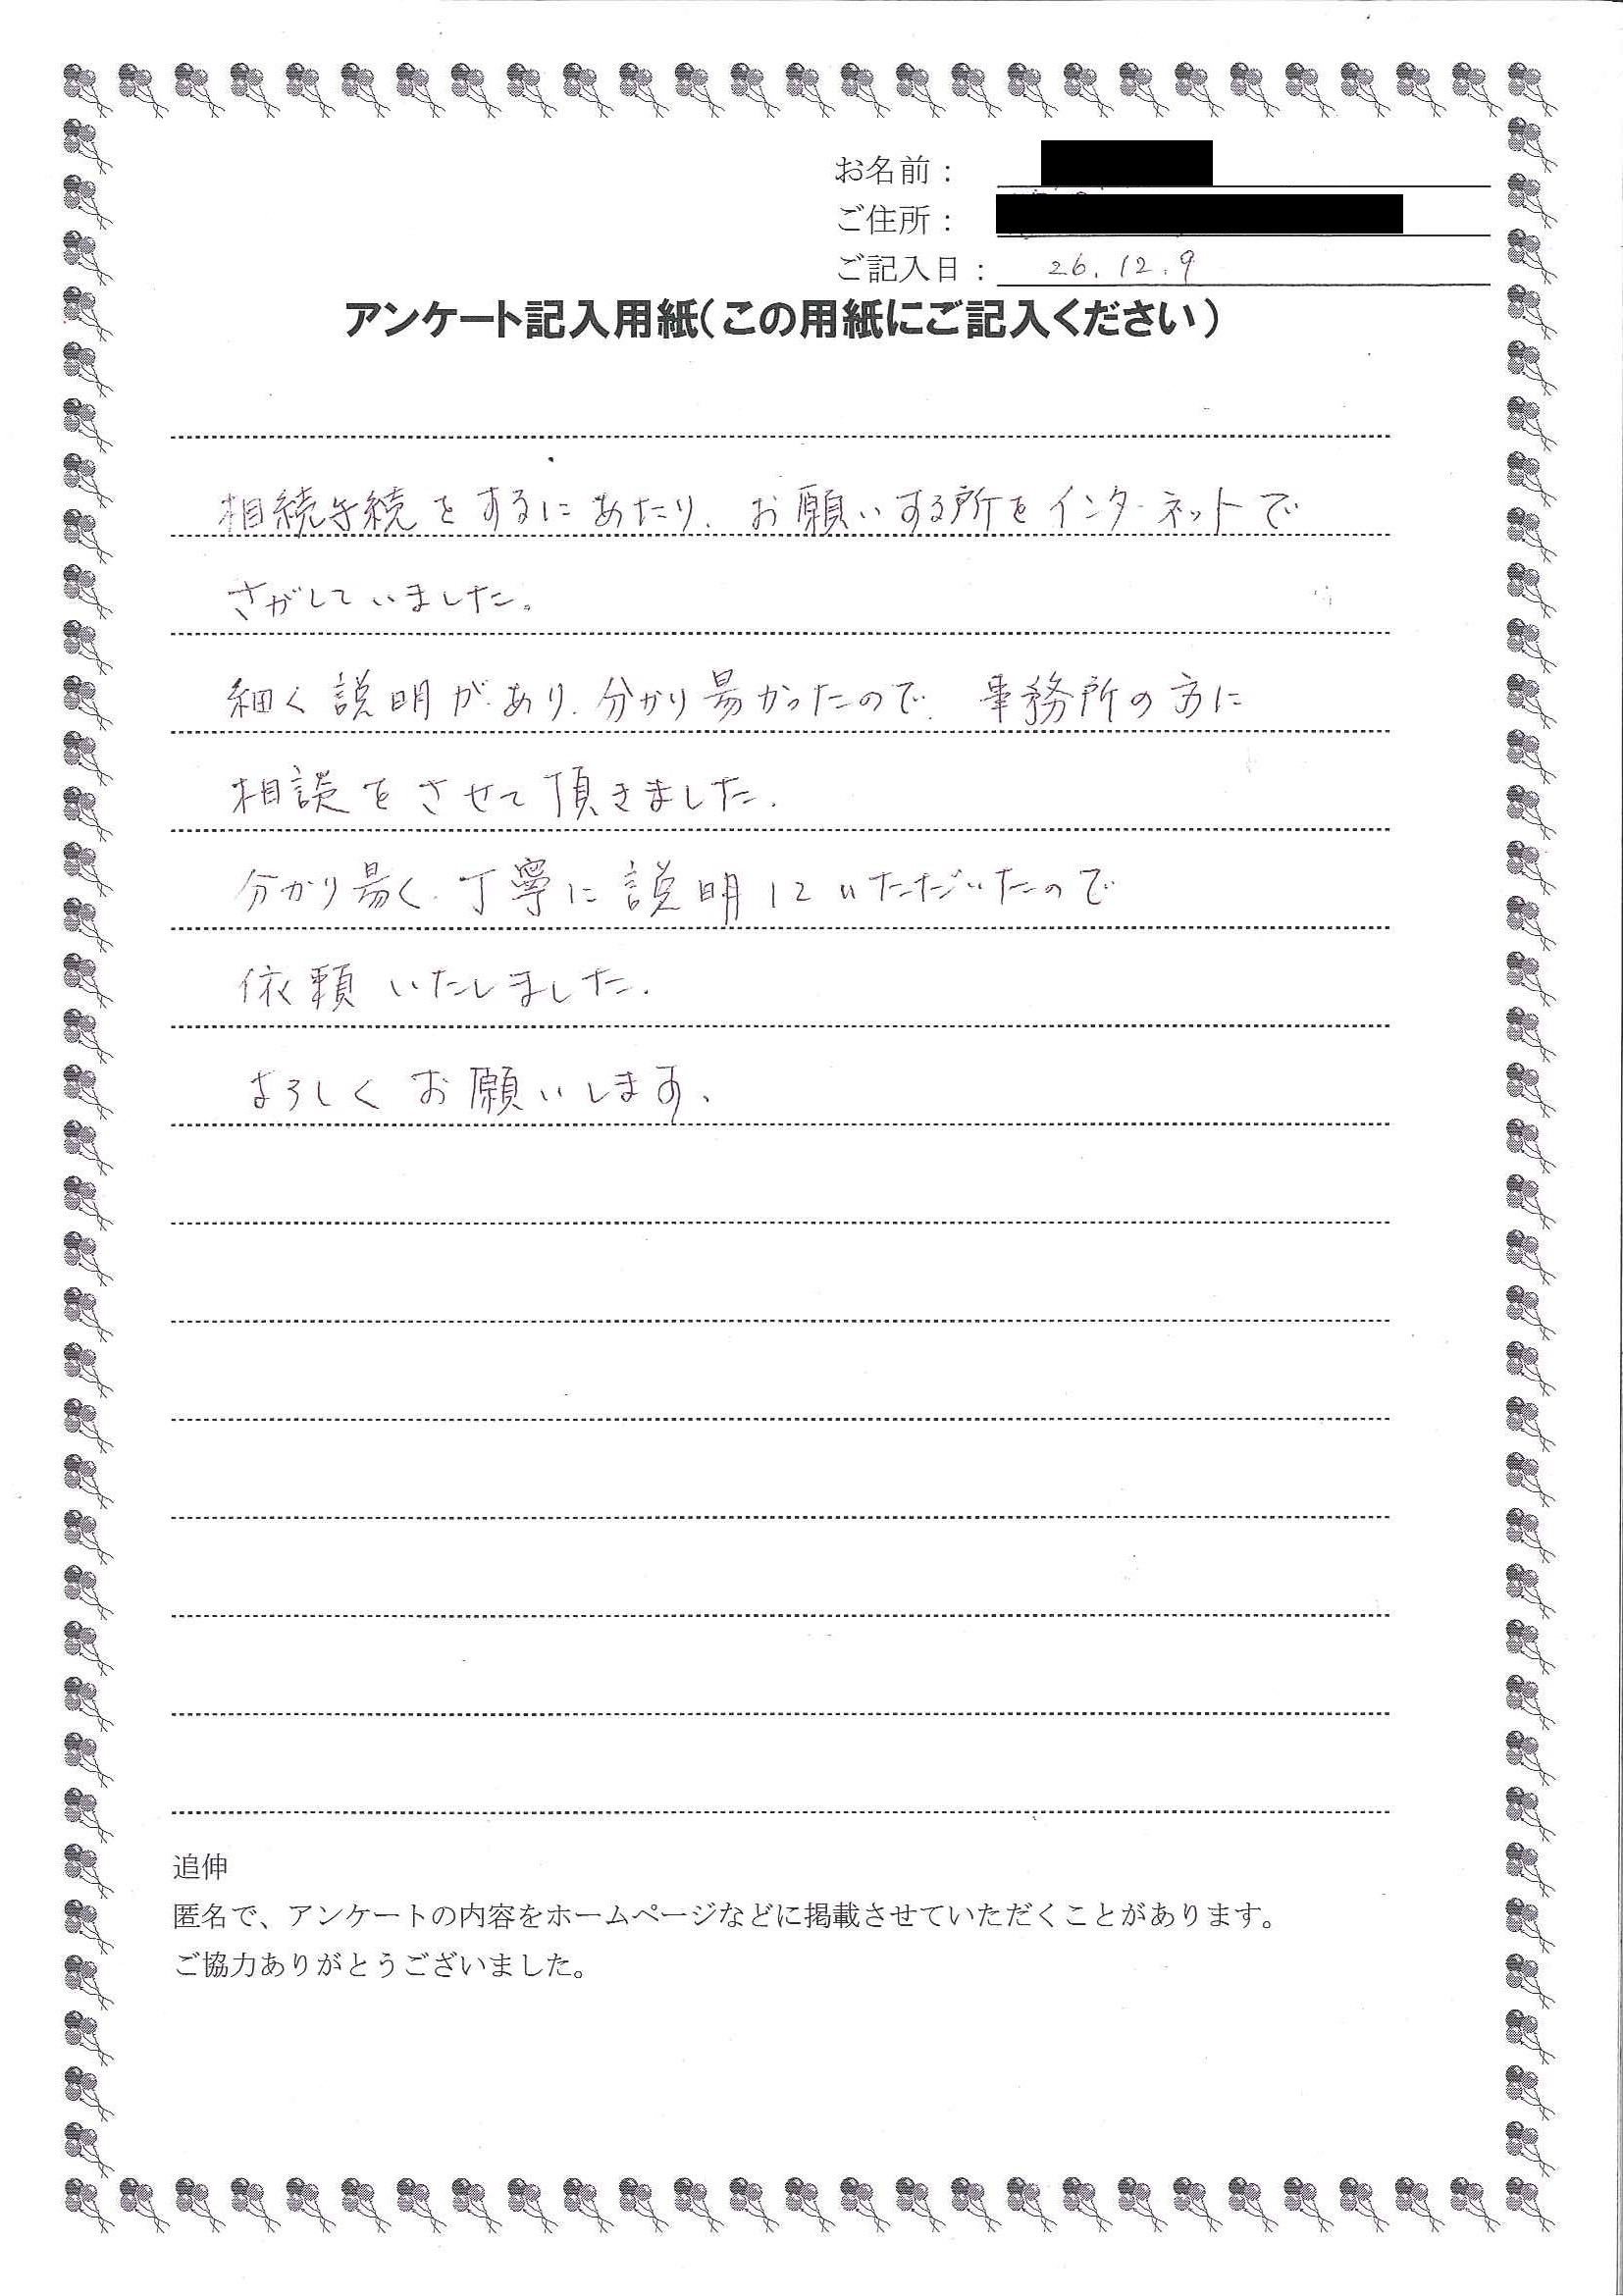 お名前：
ご住所：
ご記入日： 26.12.9
アンケート記入用紙（この用紙にご記入ください）
相続手続をするにあたり、お願いする所をインターネットで
さがしていました。
細く説明があり、分かり易かったので、事務所の方に
相談をさせて頂きました。
分かり易く、丁寧に説明していただいたので
依頼いたしました。
よろしくお願いします。
追伸
匿名で、アンケートの内容をホームページなどに掲載させていただくことがあります。
ご協力ありがとうございました。